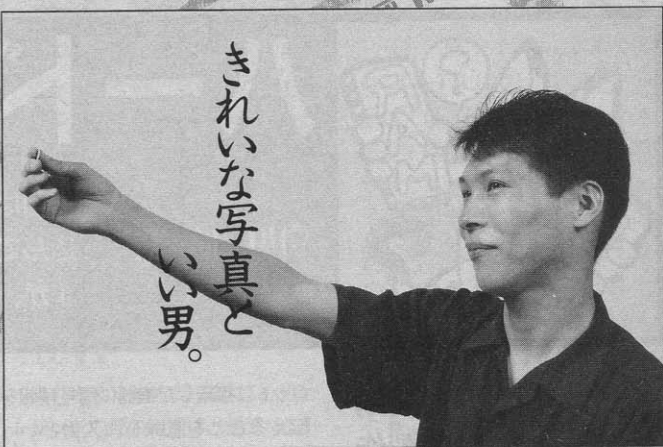 きれいな写真と
いい男。